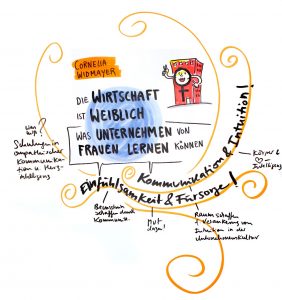 CORNELIA
WIDMAYER
DIE WIRTSCHAFT
IST WEIBLICH
WAS UNTERNEHMEN VON
FRAUEN LERNEN KÖNNEN
Kommunikation & Intuition!
Einfühlsamkeit & Fürsorge!
Was
hilft?
Schulungen in
empathischer
Kommunika-
tion u. Herz-
Körper &
♡-Intelligenz
Bewusstsein
schaffen durch
Kommunik.
Mut
dazu!
Raum schaffen
& Verankerung von
Intuition in der
Unternehmenskultur